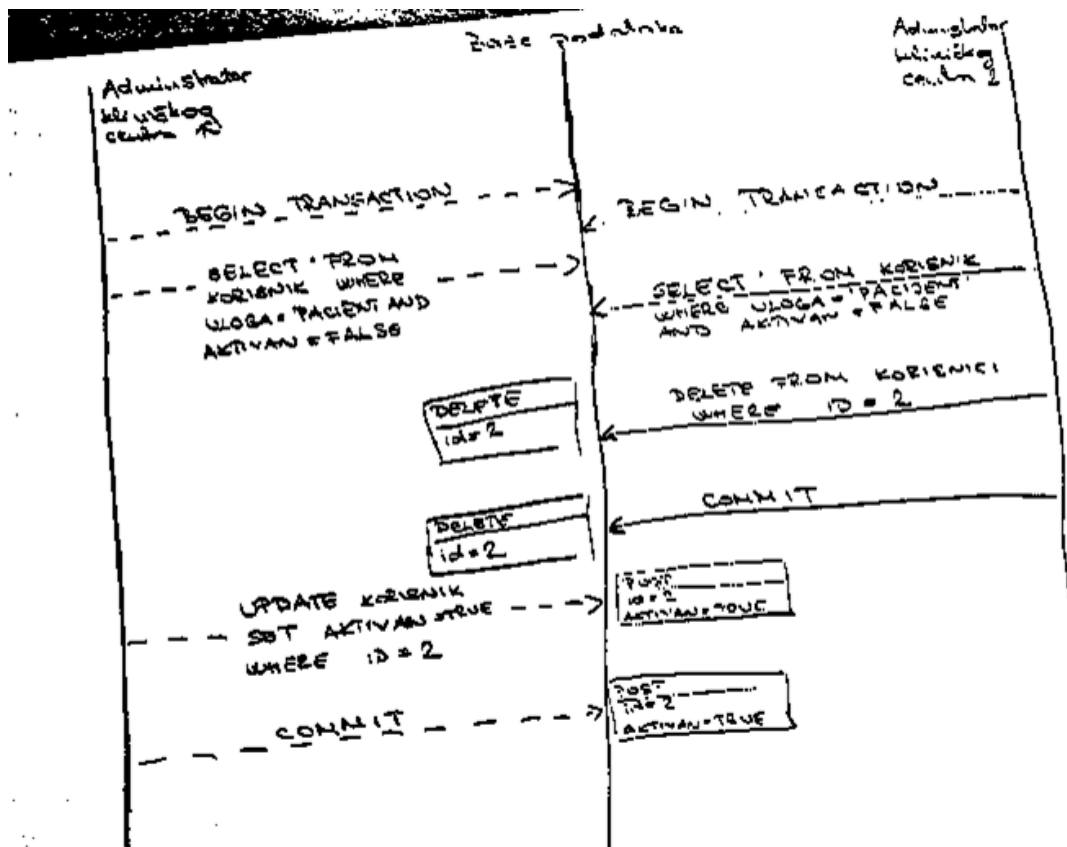 Baze podataka
Administrator
kliničkog
centra 1
Administrator
kliničkog
centra 2
BEGIN TRANSACTION
BEGIN TRANSACTION
SELECT * FROM
KORISNIK WHERE
ULOGA="PACIENT AND
AKTIVAN = FALSE
SELECT * FROM KORISNIK
WHERE ULOGA="PACIJENT"
AND AKTIVAN = FALSE
DELETE FROM KORISNICI
WHERE ID = 2
DELETE
id = 2
COMMIT
DELETE
id = 2
UPDATE KORISNIK
SET AKTIVAN=TRUE
WHERE ID = 2
POST
id=2
AKTIVAN=TRUE
COMMIT
POST
id=2
AKTIVAN=TRUE